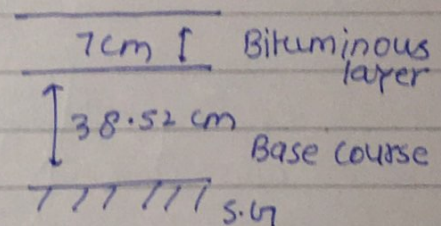 7cm Bituminous
layer
38.52 cm
Base course
S.G